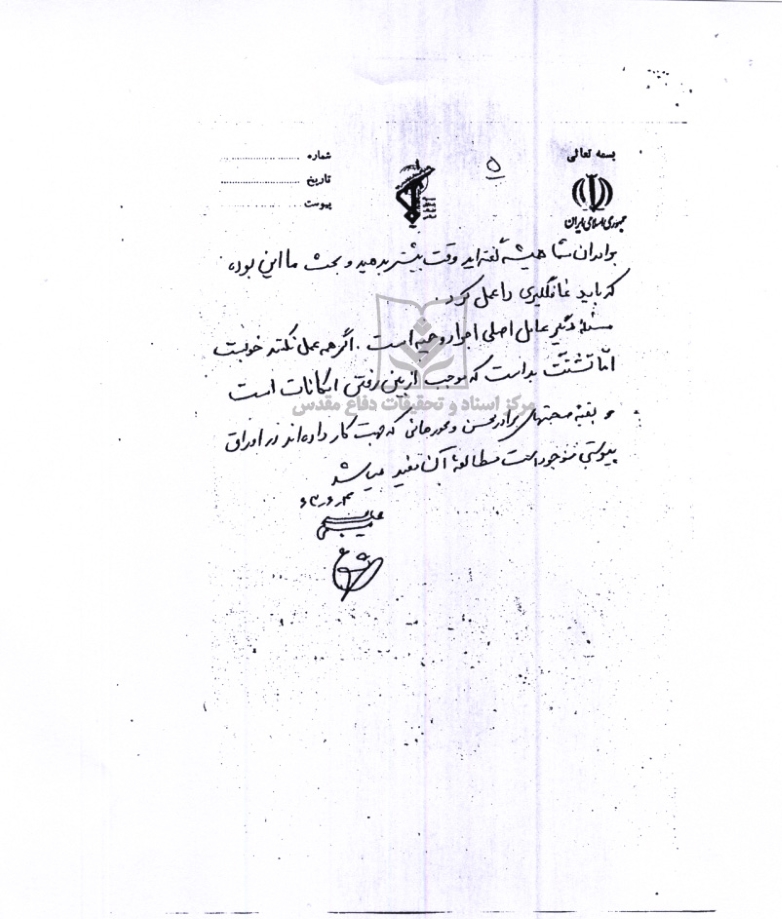 بسمه تعالی
جمهوری اسلامی ایران
۵
شماره
تاریخ
پیوست
برادران شما همیشه گفته‌اید وقت بیشتر بدهید و بحث ما این بوده
که باید غافلگیری را عمل کرد.
مسئله دیگر عامل اصلی اجرا روحیه است. اگر همه عمل نکنند خوبست
امّا تشتّت بد است که موجب از بین رفتن امکانات است
و بقیه صحبتهای برادر محسن و محورهائی که جهت کار داده‌اند در اوراق
پیوستی موجود است مطالعهٔ آن مفید میباشد
مرکز اسناد و تحقیقات دفاع مقدس